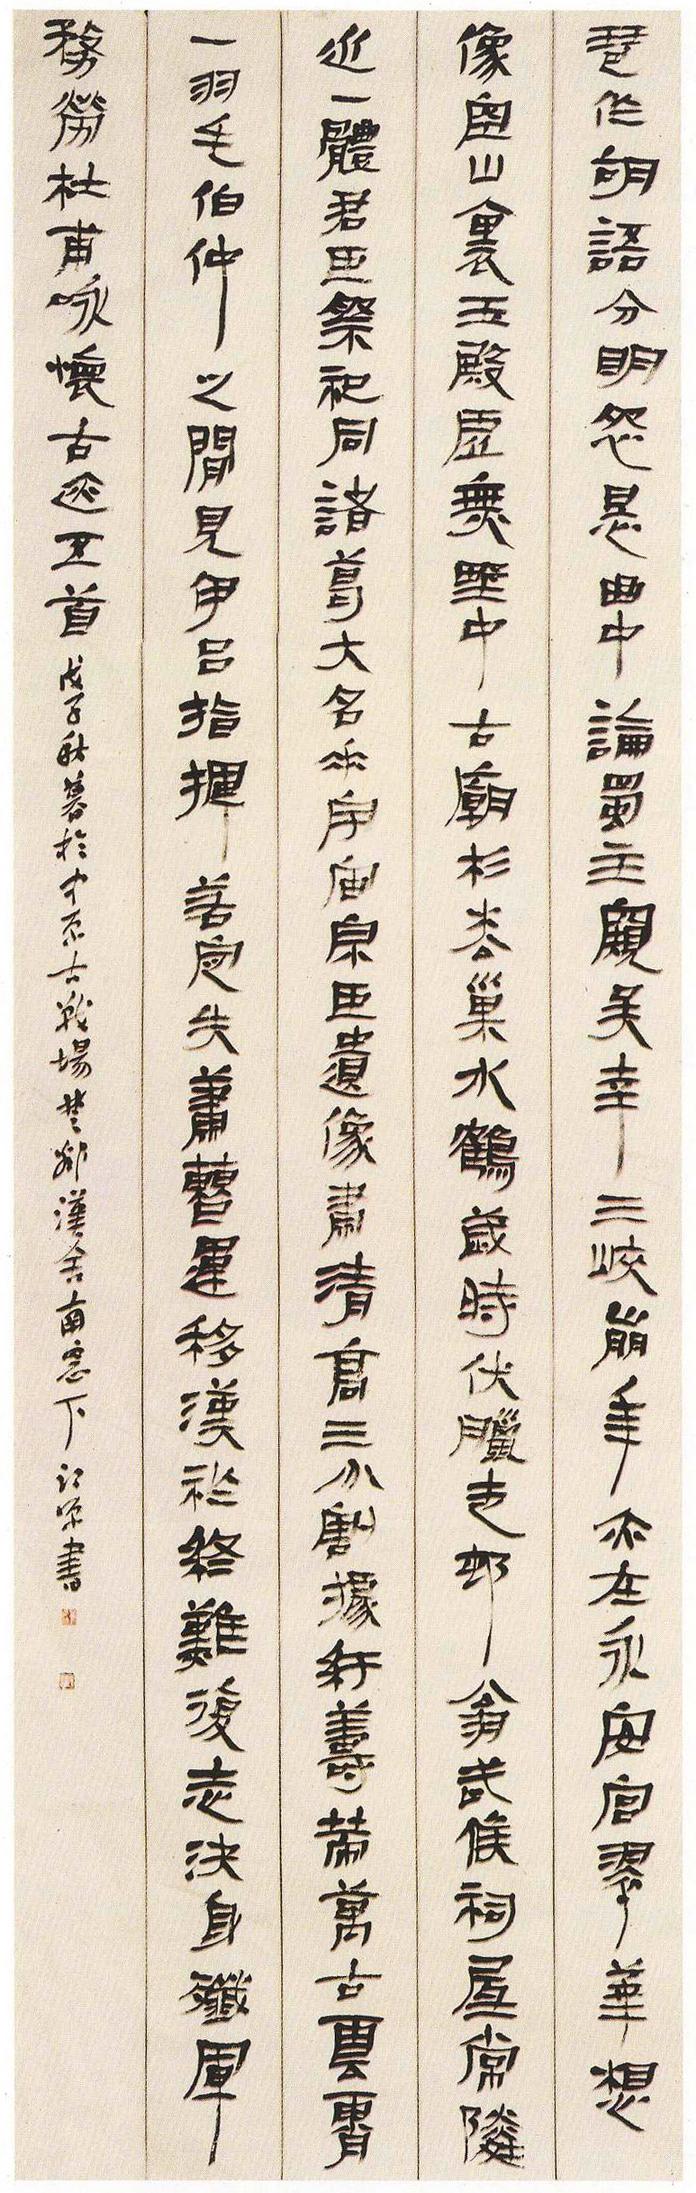 琶作胡語分明怨恨曲中論蜀主窺吳幸三峽崩年亦在永安宮翠華想
像空山裏玉殿虛無野中古廟杉松巢水鶴歲時伏臘走邨翁武侯祠屋常隣
近一體君臣祭祀同諸葛大名垂宇宙宗臣遺像肅清高三分割據紆籌策萬古雲霄
一羽毛伯仲之間見伊呂指揮若定失蕭曹運移漢祚終難復志決身殲軍
務勞杜甫咏懷古迹五首戊子秋暮於中原古戰場楚鄉漢舍南窓下書